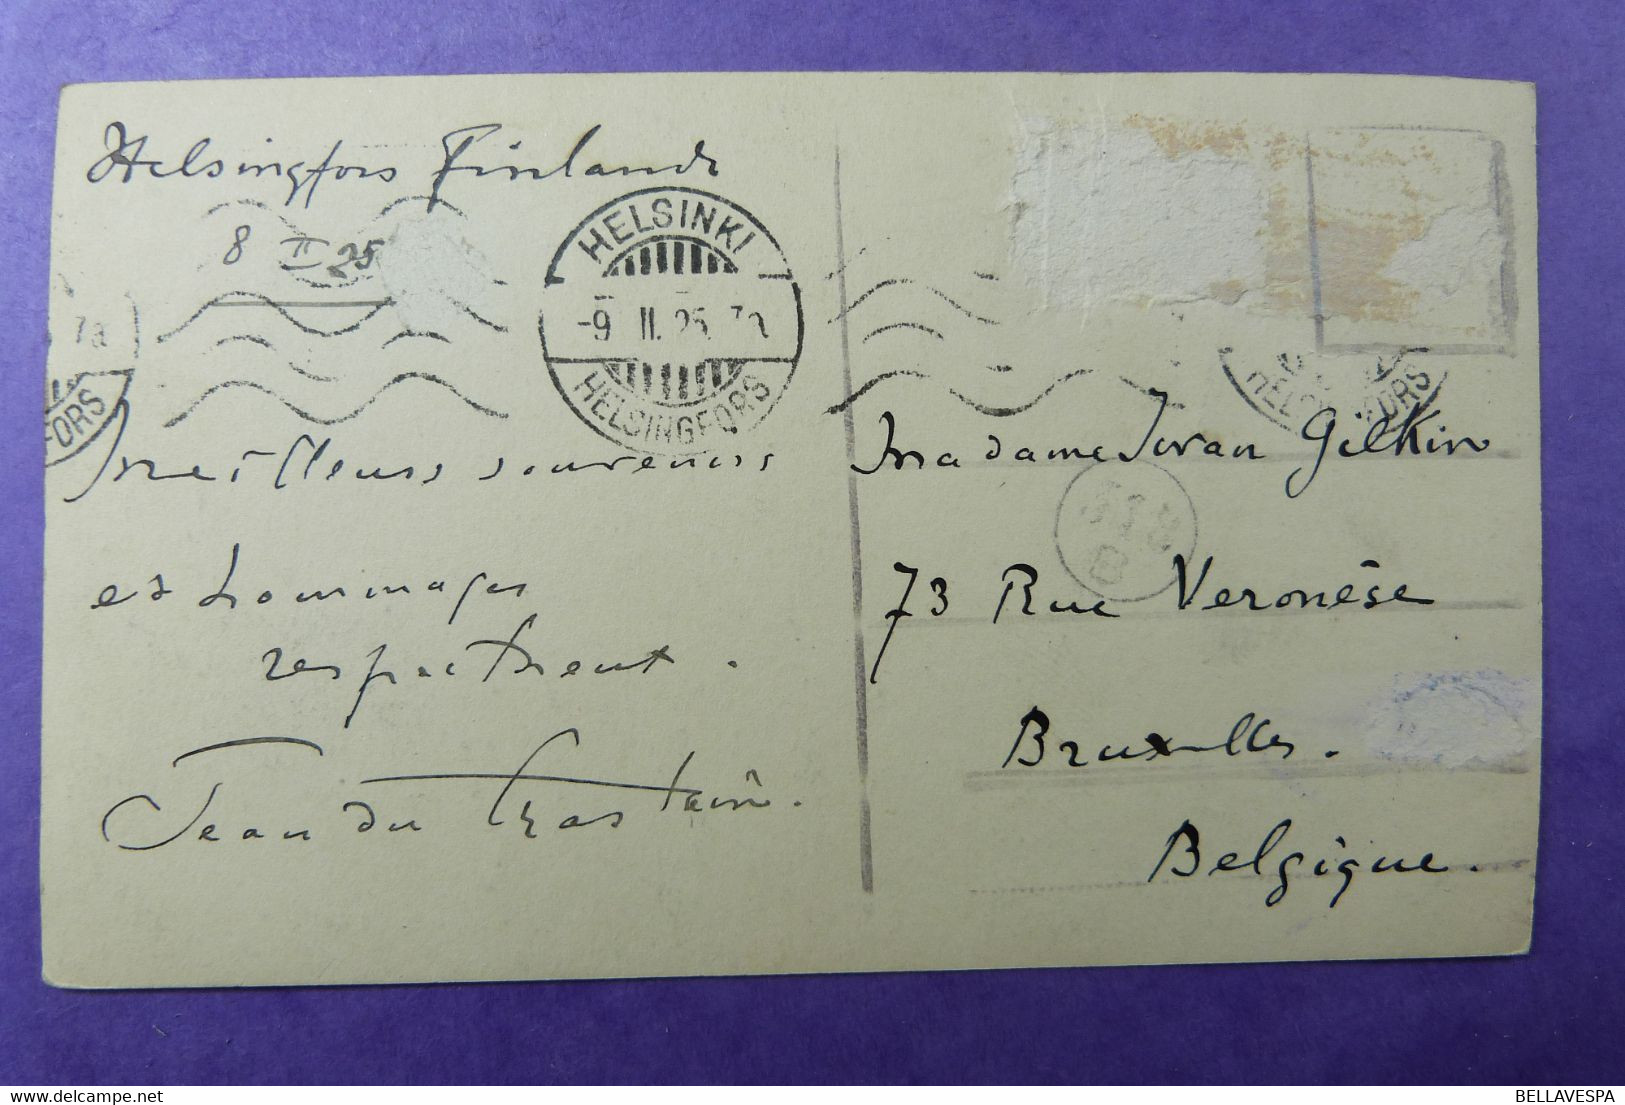 Helsingfors Finlande
8 II 25
HELSINKI
-9 II. 25. 7a
HELSINGFORS
7a
FORS
HELSINGFORS
meilleurs souvenirs
et hommages
respectueux.
Jean du
Madame Iwan Gilkin
338
B
73 Rue Veronèse
Bruxelles.
Belgique.
BELLAVESPA